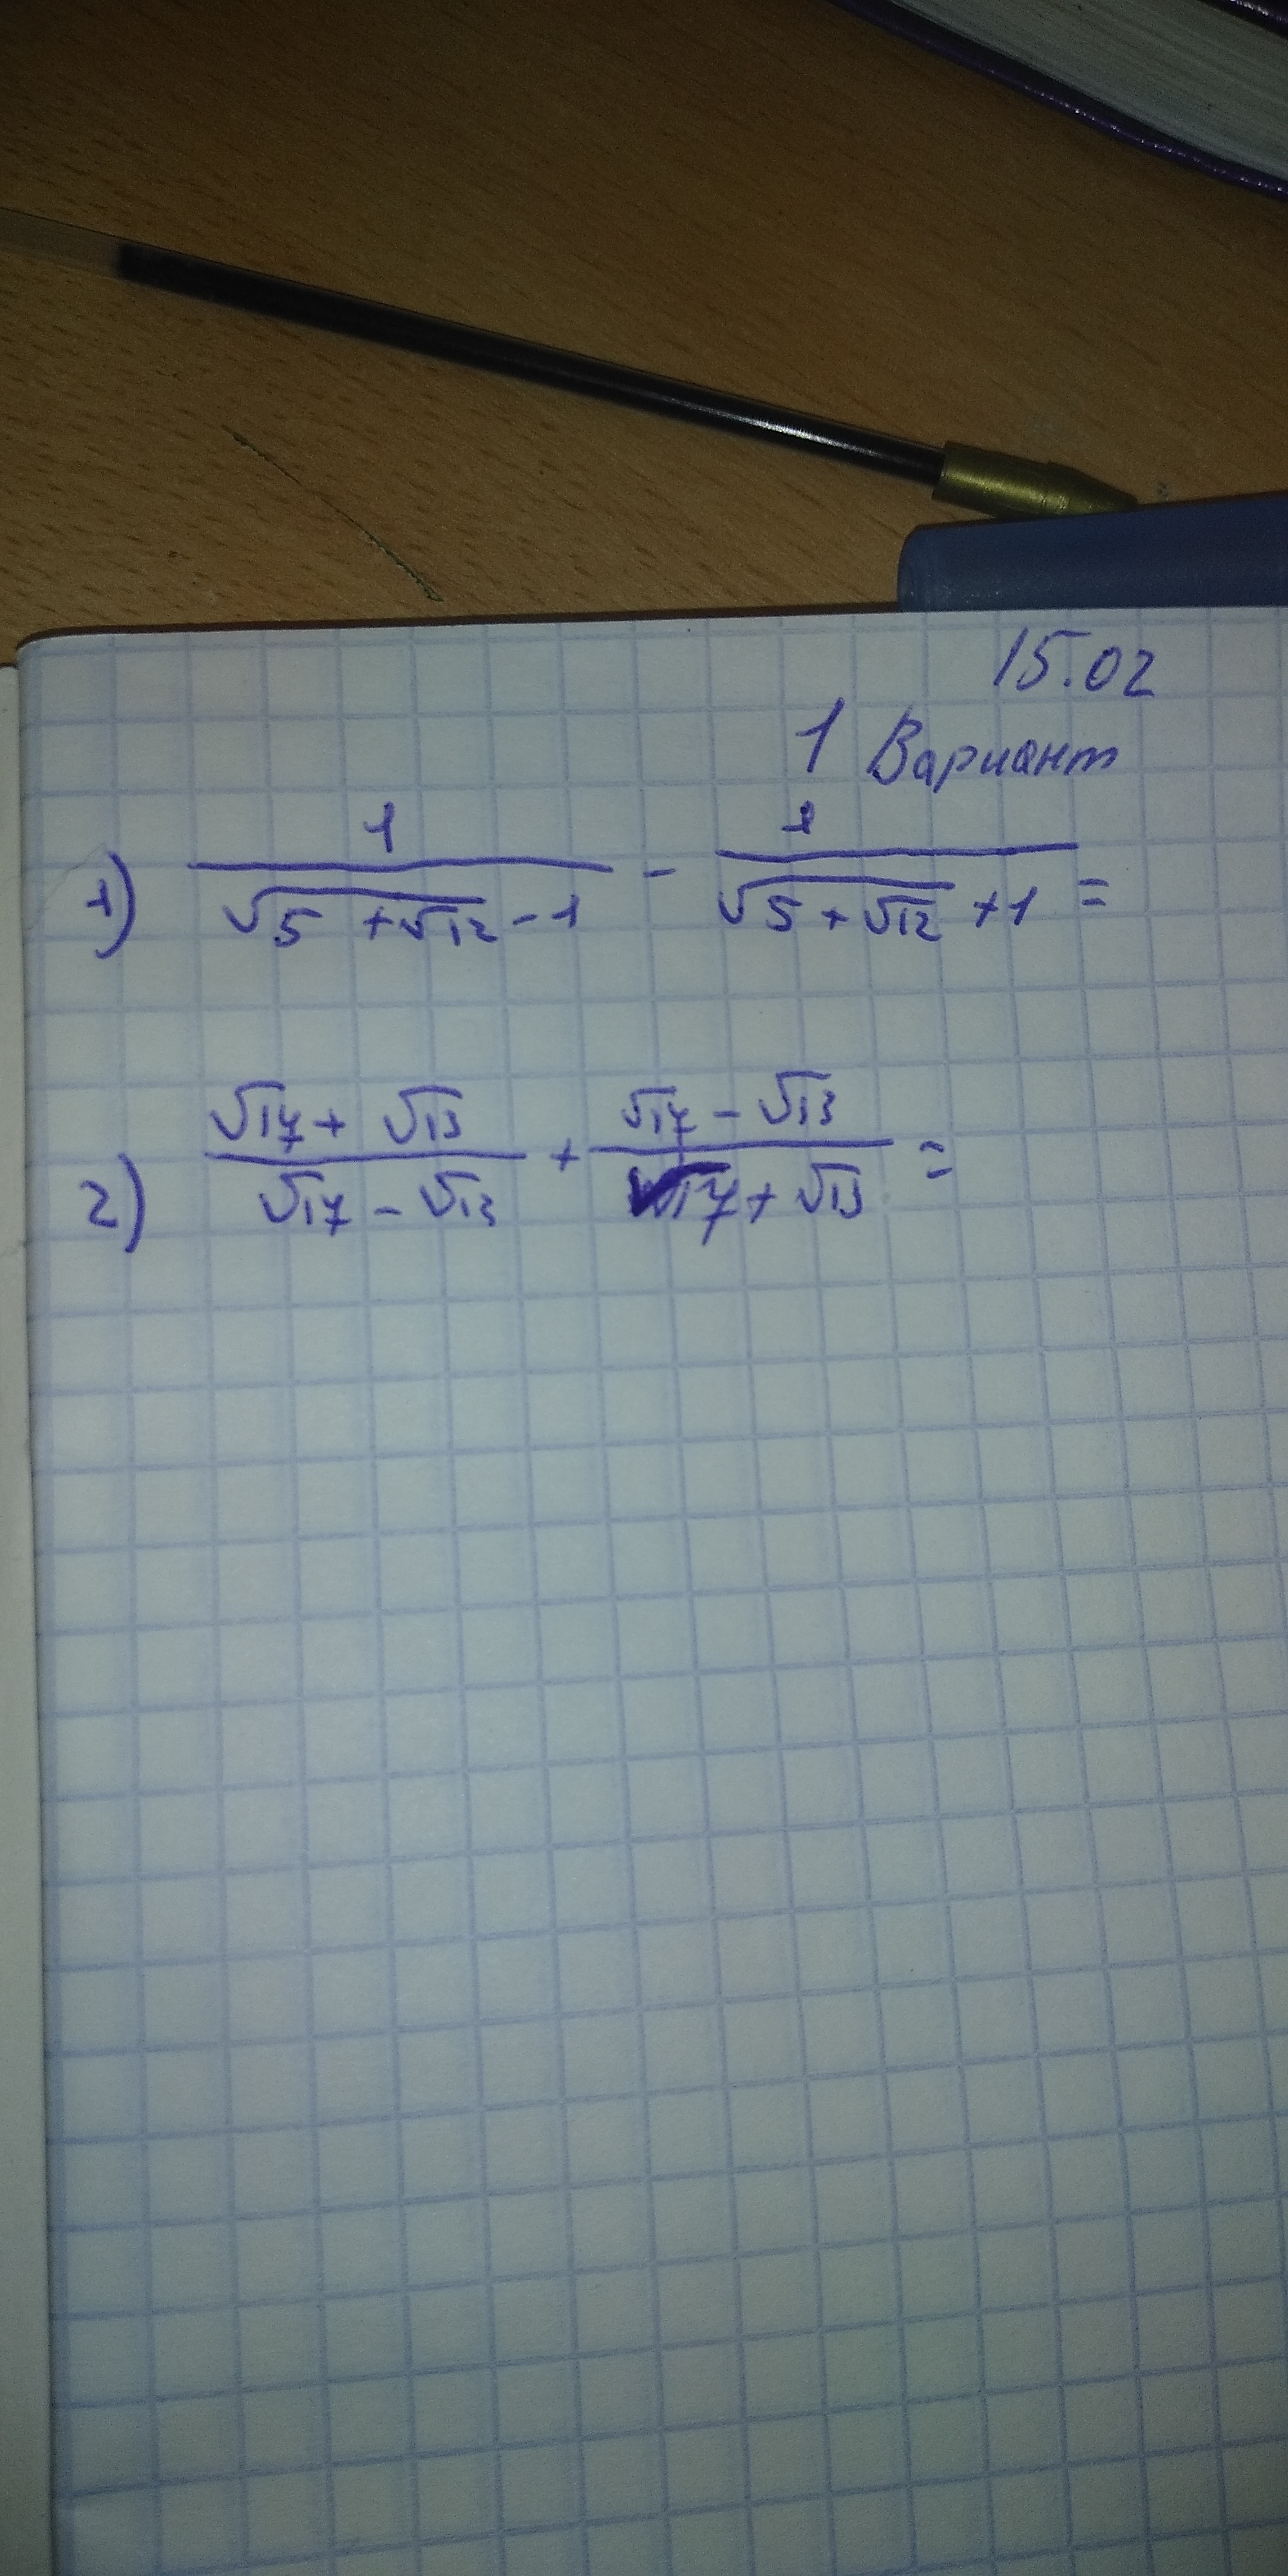 15.02
1 Вариант
1) \frac{1}{\sqrt{5+\sqrt{12}}-1} - \frac{1}{\sqrt{5+\sqrt{12}}+1} =
2) \frac{\sqrt{17}+\sqrt{13}}{\sqrt{17}-\sqrt{13}} + \frac{\sqrt{17}-\sqrt{13}}{\sqrt{17}+\sqrt{13}} =